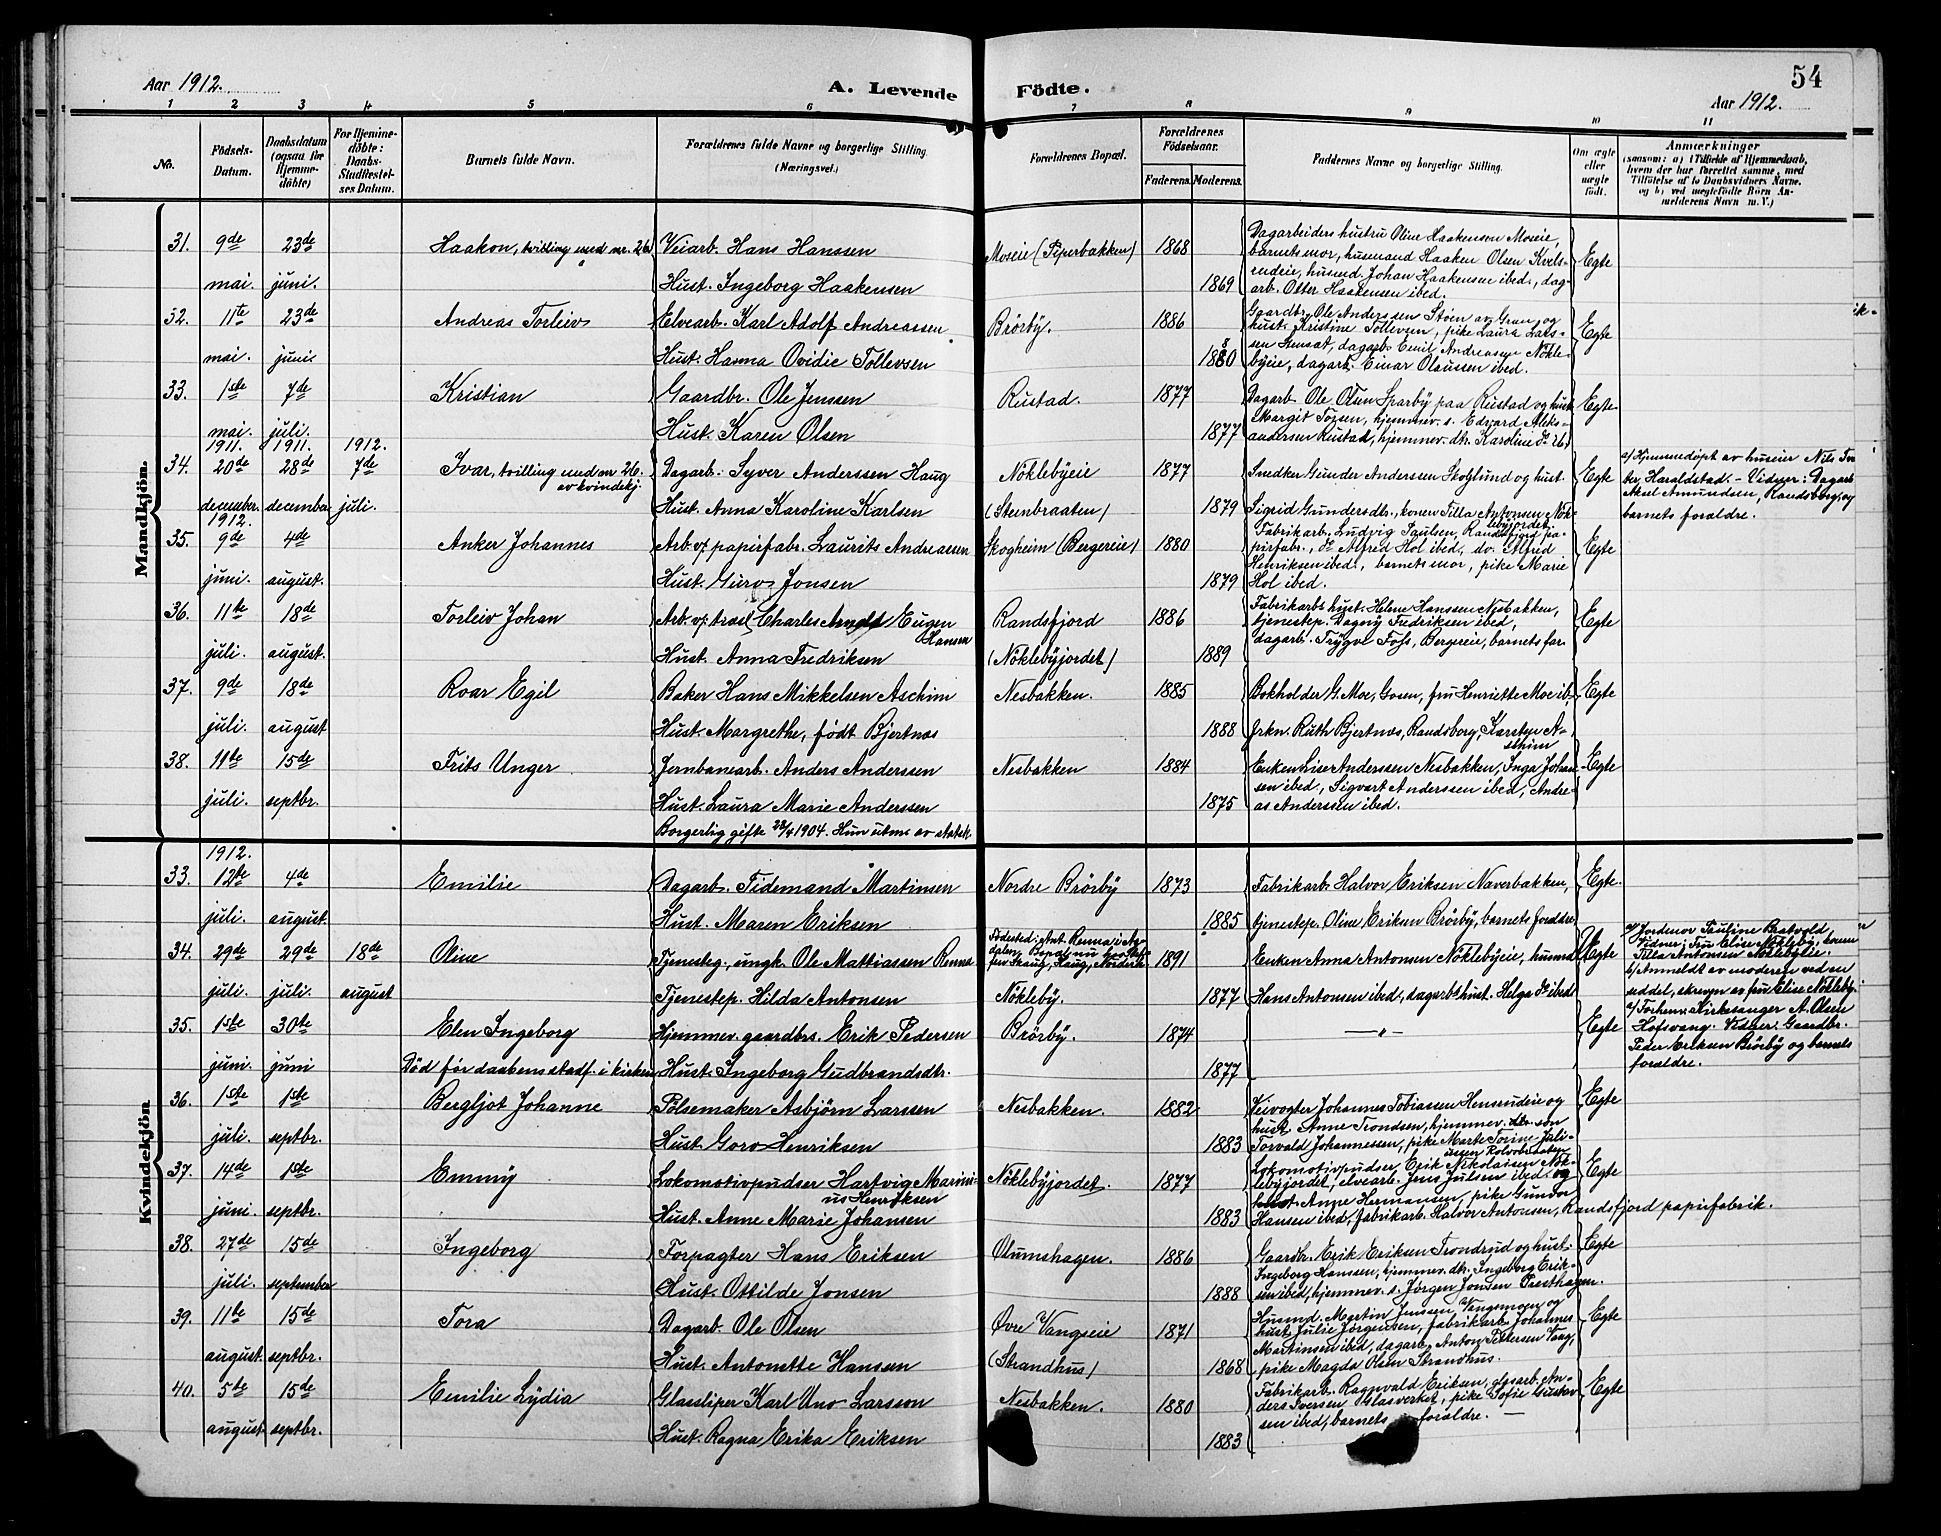 54
Aar 1912.
A. Levende Födte.
Aar 1912.
1 2 3 4 5 6 7 8 9 10 11
No.
Födsels-Datum.
Daabsdatum (ogsaa for Hjemme-döbte)
For Hjemme-döbte: Daabs-Stadfæstel-ses Datum.
Barnets fulde Navn.
Forældrenes fulde Navne og borgerlige Stilling (Næringsvei.)
Forældrenes Bopæl.
Forældrenes Födselsaar.
Faderens. Moderens.
Faddernes Navne og borgerlige Stilling.
Om ægte eller uægte födt.
Anmærkninger
(saasom: a) i Tilfælde af Hjemmedaab,
hvem der har forrettet samme, med
Tilföielse af to Daabsvidners Navne,
og b) ved uægtefödte Börn An-
melderens Navn m. V.)
Mandkjön.
31. 9de mai. 23de juni. Haakon, tvilling med nr. 26.
Veiarb. Hans Hanssen
Hust. Ingeborg Haakensen
Moseie (Piperbakken) 1868 1869
Dagarbeiders hustru Oline Haakensen Moseie,
barnets mor, husmand Haaken Olsen Kvels-
rudeie, husmd. Johan Haakensen ibed., dag-
arb. Otter Haakensen ibed.
Egte
32. 11te mai. 23de juni Andreas Torleiv
Elvearb. Karl Adolf Andreassen
Hust. Hanna Ovidie Tollevsen
Brörby. 1886 1880
Gaardbr. Ole Anderssen Stöen av Gran, og
hust. Kristine Tollevsen, pike Laura Lars-
sen, dagarb. Emil Andreasen Nökle-
byeie, dagarb. Einar Olaussen ibed.
Egte
33. 1ste mai. 7de juli. Kristian
Gaardbr. Ole Jenssen
Hust. Karen Olsen
Rustad. 1877 1877
Dagarb. Ole Olsen Sparby paa Rustad og hust.
Margit, hjemmev. s. Edvard Aleks-
andersen Rustad, hjemmev. dtr. Karoline do ib.
Egte
34. 1911. 20de december. 1911. 28de december 1912. 7de juli. Ivar, tvilling med nr 26. av kvindekj.
Dagarb. Syver Anderssen Haug
Hust. Anna Karoline Karlsen
Nöklebyeie (Steenbraaten) 1877 1879
Snedker Gunder Anderssen Skoglund og hust.
Sigrid Gundersdtr., konen Tilla Antonsen Nök-
lebyjordet.
Egte
a/ Hjemmedöpt av huseier Nils
Haraldstad. - Vidner: Dagarb.
Aksel Amundsen, Randsborg, og
barnets foraldre.
35. 1912. 9de juni. 4de august. Anker Johannes
Arb. v/ papirfabr. Laurits Andreassen
Hust. Guro Jonsen
Skogheim (Bergereie) 1880 1879
Fabrikarb. Ludvig Paulsen, Randsfjord pa-
pirfabr., do Alfred Hol ibed., do. Alfred
Henriksen ibed., barnets mor, pike Marie
Hol ibed.
Egte
36. 11te juli. 18de august. Torleiv Johan
Arb. v/ træsl. Charles Arndt Eugen
Hansen
Hust. Anna Fredriksen
Randsfjord (Nöklebyjordet) 1886 1889
Fabrikarbs hust. Helene Hanssen Nesbakken,
tjenestep. Dagny Fredriksen ibed,
dagarb. Trygve Foss, Bergereie, barnets far.
Egte
37. 9de juli. 18de august Roar Egil
Baker Hans Mikkelsen Aschim
Hust. Margrethe, født Bjertnæs
Nesbakken. 1885 1888
Bokholder G. Moe, Gosen, fru Henriette Moe ib.,
frkn. Ruth Bjertnæs, Randsborg, Karsten A-
schim
Egte
38. 11te juli. 15de septbr. Frits Unger
Jernbanearb. Anders Anderssen
Hust. Laura Marie Anderssen
Borgerlig gifte 22/4 1904. Hun utms av statsk.
Nesbakken 1884 1875
Enken Lise Anderssen Nesbakken, Inga Johan-
sen ibed., Sigvart Anderssen ibed, Andre-
as Anderssen ibed.
Egte
Kvindekjön
33. 1912. 12te juli. 4de august. Emilie
Dagarb. Tidemand Martinsen
Hust. Maren Eriksen
Nordre Brörby 1873 1885
Fabrikarb. Halvor Eriksen Naverbakken,
tjenestep. Oline Eriksen Brörby, barnets foraldre.
Egte.
34. 29de juli. 29de juli. 18de august Oline
Tjenesteg., ungk. Ole Mathiassen Renna
Tjenestep. Hilda Antonsen
Nökleby. 1891 1877
Enken Anna Antonsen Nöklebyeie, husmd
Hans Antonsen ibed, dagarbs hust. Helga do ibed.
a/ Jordmor Pauline Brekvold,
Vidner: fru Elise Nökleby, konen
Tilla Antonsen Nöklebyeie.
b/ Anmeldt av moderen ved en
seddel, skreven av fru Elise Nökleby.
35. 1ste juni. 30te juni Elen Ingeborg
Död før daabens stadf. i kirken
Hjemmev. gaardbrs. Erik Pedersen
Hust. Ingeborg Gudbrandsdtr.
Brörby. 1874 1877
— „ —
Egte
a/ Forhenv. kirkesanger A. Olsen
Hofsvang. Vidner: Gaardbr.
Peder Eriksen Brörby og barnets
foraldre.
36. 1ste juli. 1ste septbr. Bergljot Johanne
Pölsemaker Asbjörn Larssen
Hust. Goro Henriksen
Nesbakken. 1882 1883
Veivogter Johannes Tobiassen Hensrudeie og
hust. Anne Trondsen, hjemmev. søn
Torvald Johannessen, pike Marte Torine Juli-
ussen Kolvebraaten
Egte
37. 14de juni. 1ste septbr. Emmy
Lokomotivpudser Hartvig Marini-
us Henriksen
Hust. Anne Marie Johansen
Nöklebyjordet. 1877 1883
Lokomotivpudser Erik Nikolaisen Nök-
lebyjordet, elvearb. Jens Julsen ibed. og
hust. Anne Hermansen, pike Gunda
Hansen ibed, fabrikarb. Halvor Antonsen, Randsfjord papirfabrik.
Egte
38. 27de juli. 15de september Ingeborg
Forpagter Hans Eriksen
Hust. Ottilde Jonsen
Olumshagen. 1886 1888
Gaardbr. Erik Eriksen Trondrud og hust.
Ingeborg Hanssen, hjemmev. dtr. Ingeborg Erik-
sen ibed, hjemmev. s. Jørgen Jonsen Præsthagen.
Egte
39. 11te august. 15de septbr. Tora
Dagarb. Ole Olsen
Hust. Antonette Hanssen
Øvre Vangseie (Strandhus) 1871 1868
Husmd. Martin Jenssen, Vangemoen og
hust. Julie Jørgensen, fabrikarb. Johannes
Martinsen ibed, dagarb. Anton Pettersen Vang,
pike Magda Olsen Strandhus.
Egte
40. 5te august 15de septbr. Emilie Lydia
Glassliper Karl Uno Larsson
Hust. Ragna Erika Eriksen
Nesbakken. 1880 1883
Fabrikarb. Ragnvald Eriksen, glasarb. An-
ders Iversen Glasverket, pike Sofie Gustav-
sen ibed, barnets foraldre. —
Egte